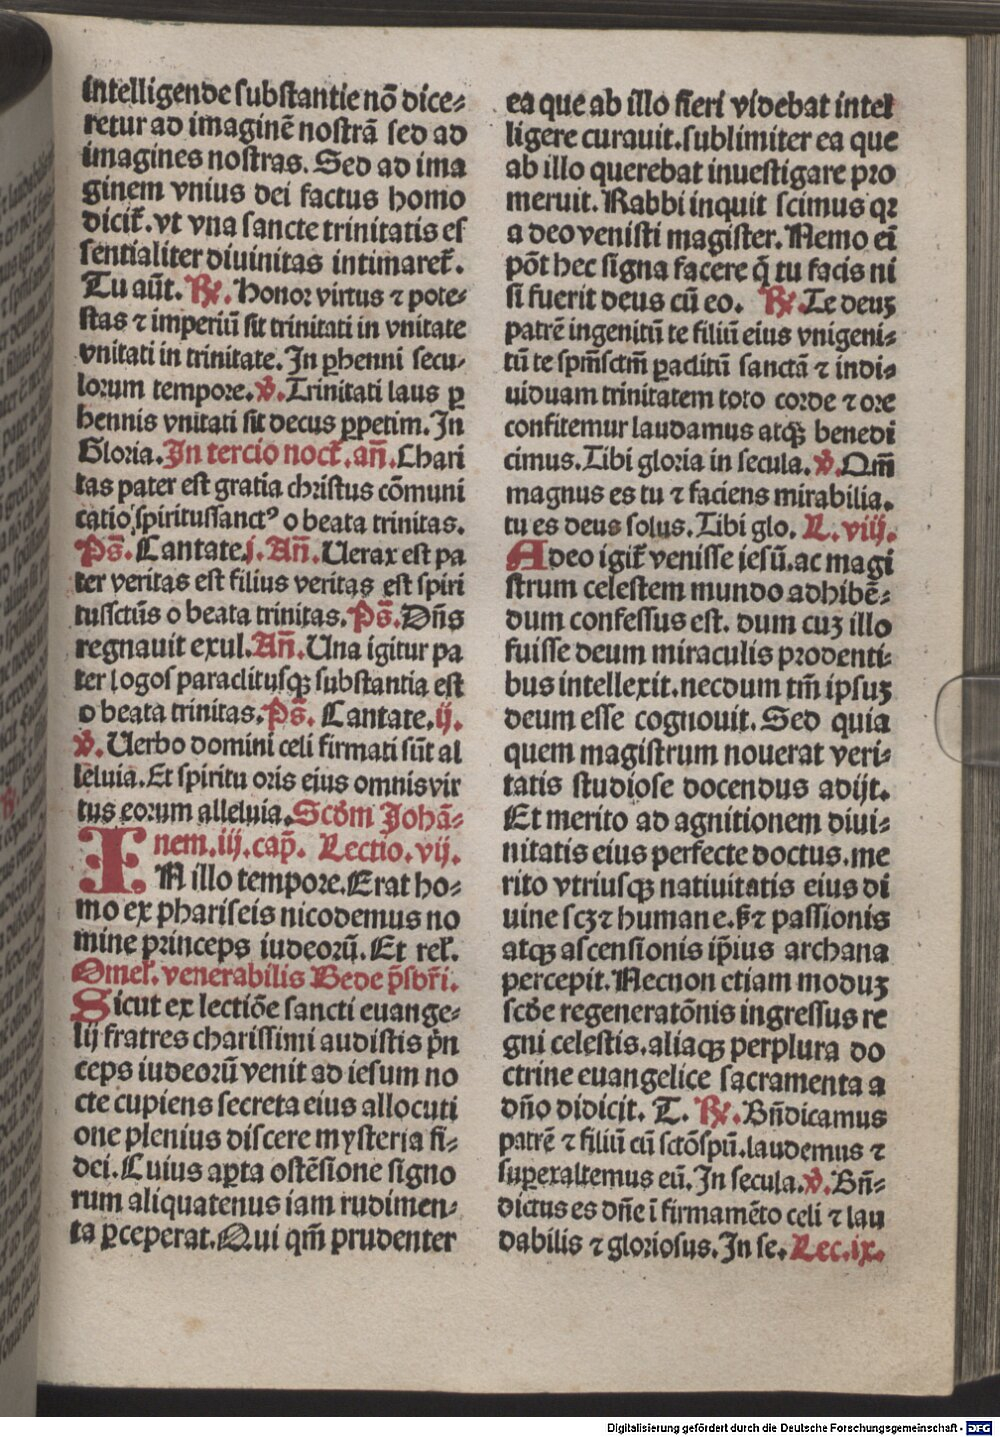 intelligende substantie nō dice⸗
retur ad imaginē nostrā sed ad
imagines nostras. Sed ad ima
ginem vnius dei factus homo
dicit᷑. vt vna sancte trinitatis es
sentialiter diuinitas intimaret᷑.
Tu aūt. ℟. Honor virtus ⁊ pote⸗
stas ⁊ imperiū sit trinitati in vnitate
vnitati in trinitate. In ꝑhenni secu⸗
lorum tempore. ℣. Trinitati laus ꝑ
hennis vnitati sit decus ꝑpetim. In
Gloria. In tercio noct᷑. an̄. Chari
tas pater est gratia christus cōmuni
catio spiritussanctꝰ o beata trinitas.
Ps̄. Cantate. j. An̄. Uerax est pa
ter veritas est filius veritas est spiri
tussctūs o beata trinitas. Ps̄. Dn̄s
regnauit exul. An̄. Una igitur pa
ter logos paraclitusqꝫ substantia est
o beata trinitas. Ps̄. Cantate. ij.
℣. Uerbo domini celi firmati sūt al
leluia. Et spiritu oris eius omnis vir
tus eorum alleluia. Scd̄m Johā⸗
nem. iij. cap̄. Lectio. vij.
IN illo tempore. Erat ho⸗
mo ex phariseis nicodemus no
mine princeps iudeorū. Et rel̄.
Omel̄. venerabilis Bede p̄sbr̄i.
Sicut ex lectiōe sancti euange⸗
lij fratres charissimi audistis p̄n
ceps iudeorū venit ad iesum no
cte cupiens secreta eius allocuti
one plenius discere mysteria fi⸗
dei. Cuius aꝑta ostēsione signo
rum aliquatenus iam rudimen⸗
ta ꝑceperat. Qui qm̄ prudenter
ea que ab illo fieri videbat intel
ligere curauit. sublimiter ea que
ab illo querebat inuestigare pro
meruit. Rabbi inquit scimus qꝛ
a deo venisti magister. Nemo ei̅
pōt hec signa facere q̄ tu facis ni
si fuerit deus cū eo. ℟. Te deuꝫ
patrē ingenitū te filiū eius vnigeni⸗
tū te spm̄sctm̄ ꝑaclitū sanctā ⁊ indi⸗
uiduam trinitatem toto corde ⁊ ore
confitemur laudamus atqꝫ benedi
cimus. Tibi gloria in secula. ℣. Qm̄
magnus es tu ⁊ faciens mirabilia.
tu es deus solus. Tibi glo. L. viij.
Adeo igit᷑ venisse iesū. ac magi
strum celestem mundo adhibē⸗
dum confessus est. dum cuꝫ illo
fuisse deum miraculis prodenti⸗
bus intellexit. necdum tm̄ ipsuꝫ
deum esse cognouit. Sed quia
quem magistrum nouerat veri⸗
tatis studiose docendus adijt.
Et merito ad agnitionem diui⸗
nitatis eius perfecte doctus. me
rito vtriusqꝫ natiuitatis eius di
uine scꝫ ⁊ humane. sꝫ ⁊ passionis
atqꝫ ascensionis ip̄ius archana
percepit. Necnon etiam moduꝫ
scd̄e regeneratōnis ingressus re
gni celestis. aliaqꝫ perplura do
ctrine euangelice sacramenta a
dn̄o didicit. T. ℟. Bn̄dicamus
patrē ⁊ filiū cū sctōspū. laudemus ⁊
suꝑexaltemus eū. In secula. ℣. Bn̄⸗
dictus es dn̄e ī firmamēto celi ⁊ lau
dabilis ⁊ gloriosus. In se. Lec. ix.
Digitalisierung gefördert durch die Deutsche Forschungsgemeinschaft - DFG